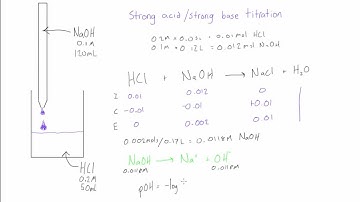 Strong acid/strong base titration
NaOH
0.1M
120mL
0.2M × 0.05L = 0.01mol HCl
0.1M × 0.12L = 0.012mol NaOH
HCl + NaOH → NaCl + H₂O
I 0.01 0.012 0
C -0.01 -0.01 +0.01
E 0 0.002 0.01
0.002mols/0.17L = 0.0118M NaOH
NaOH → Na⁺ + OH⁻
0.0118M 0.0118M
HCl
0.2M
50mL
pOH = -log